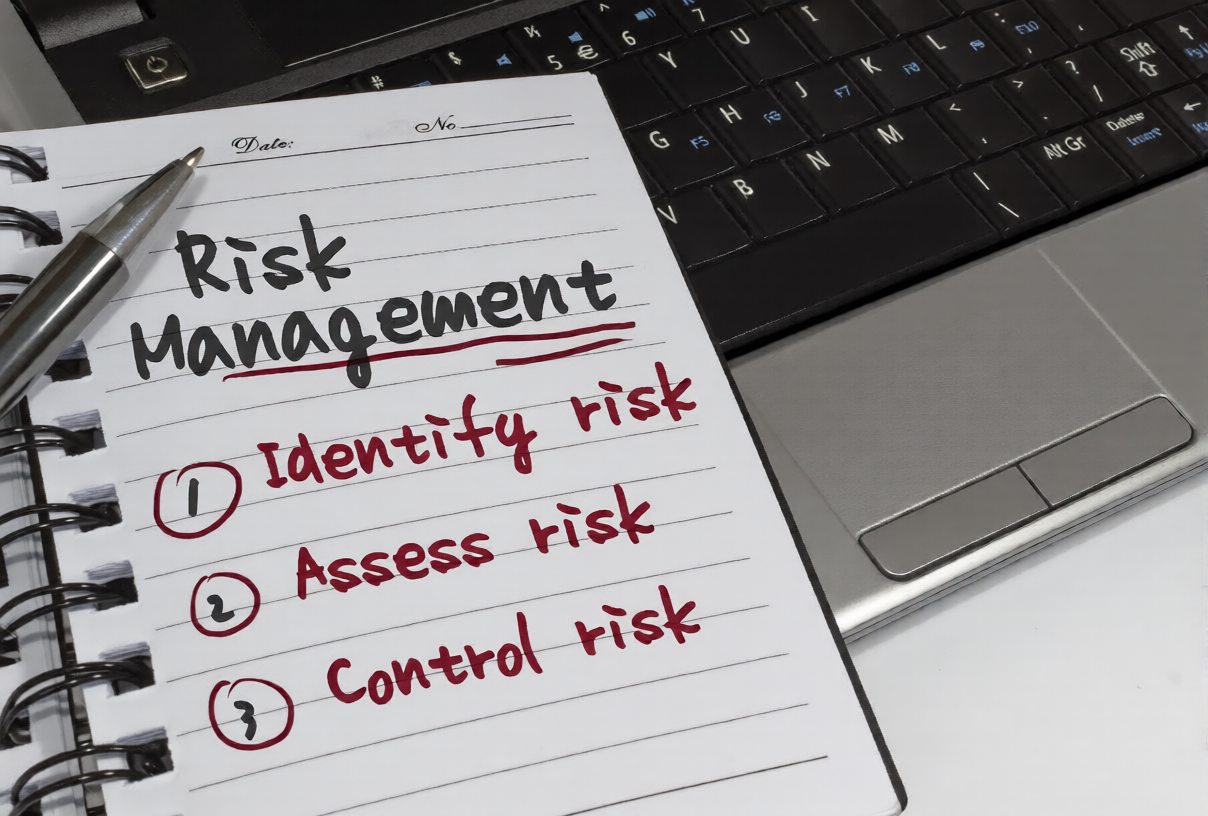 Date:
No
Risk
Management
1 Identify risk
2 Assess risk
3 Control risk
# $ % 5 € ^ 6 7
Y U I
G F5 H F6 J F7 K F8 L F9 : ; F10
V B N M < , > . ? / Shift
| \ Alt Gr Delete Insert